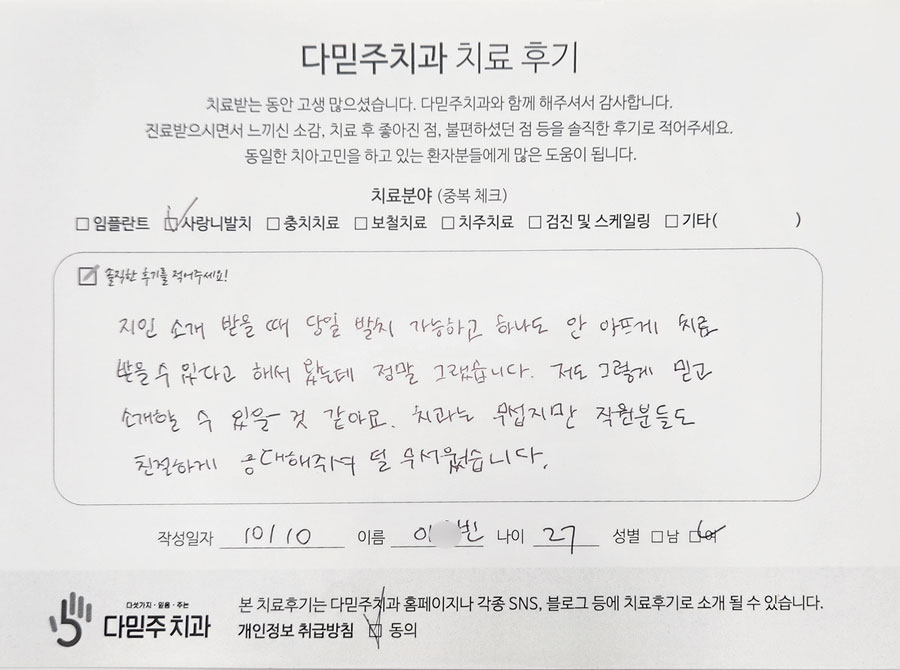 다믿주치과 치료 후기
치료받는 동안 고생 많으셨습니다. 다믿주치과와 함께 해주셔서 감사합니다.
진료받으시면서 느끼신 소감, 치료 후 좋아진 점, 불편하셨던 점 등을 솔직한 후기로 적어주세요.
동일한 치아고민을 하고 있는 환자분들에게 많은 도움이 됩니다.
치료분야 (중복 체크)
□ 임플란트 ☑ 사랑니발치 □ 충치치료 □ 보철치료 □ 치주치료 □ 검진 및 스케일링 □ 기타( )
솔직한 후기를 적어주세요!
지인 소개 받을 때 당일 발치 가능하고 하나도 안 아프게 치료
받을 수 있다고 해서 왔는데 정말 그랬습니다. 저도 그렇게 믿고
소개할 수 있을 것 같아요. 치과는 무섭지만 직원분들도
친절하게 응대해주셔 덜 무서웠습니다.
작성일자 10/10 이름 이 빈 나이 27 성별 □ 남 ☑ 여
다섯가지·믿음·주는
다믿주치과
본 치료후기는 다믿주치과 홈페이지나 각종 SNS, 블로그 등에 치료후기로 소개 될 수 있습니다.
개인정보 취급방침 ☑ 동의